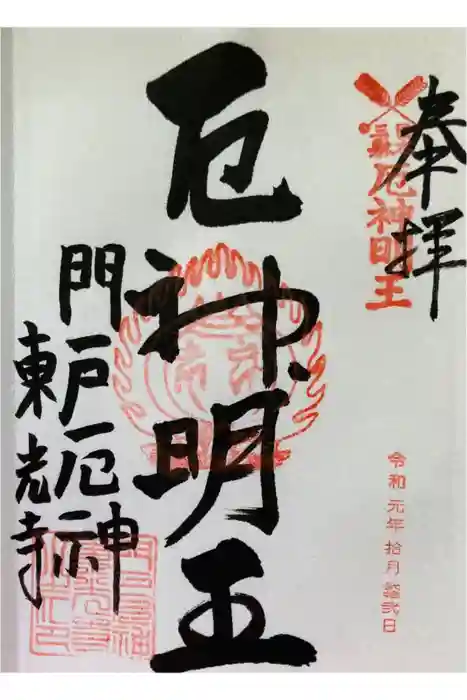 奉拝
厄神明王
令和元年拾月
日
厄神明王
門戸厄神
東光寺